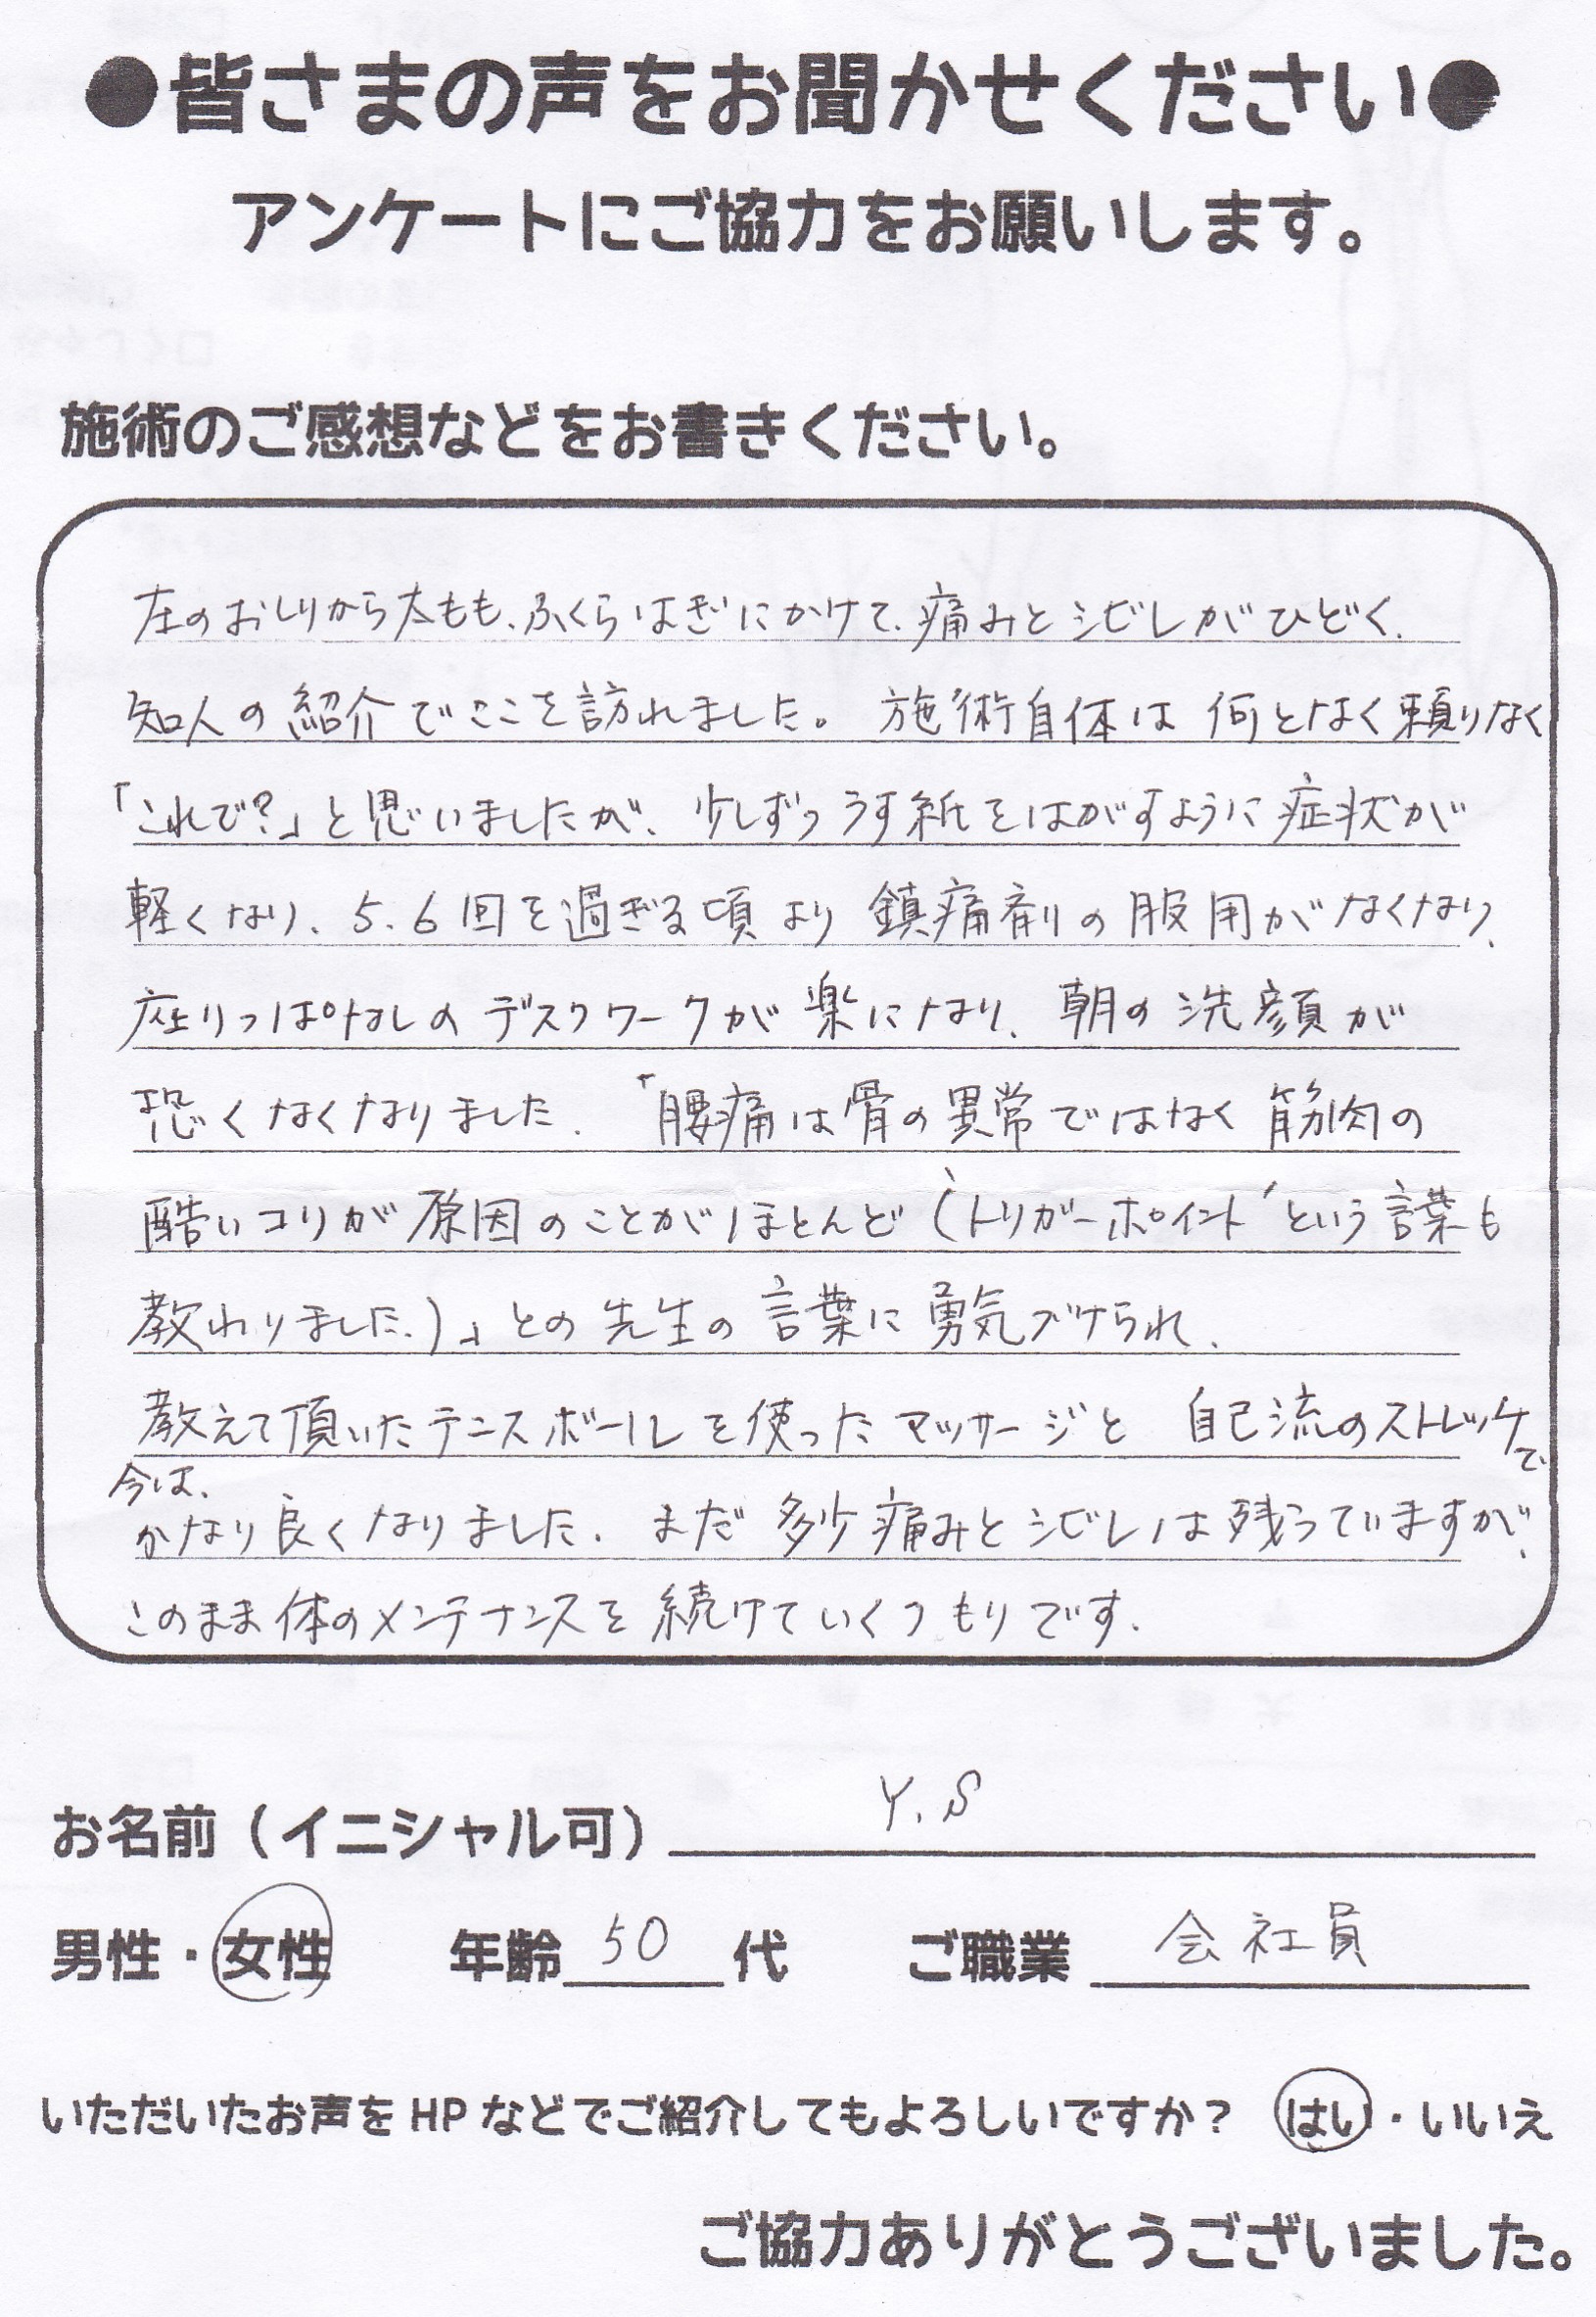 ●皆さまの声をお聞かせください●
アンケートにご協力をお願いします。
施術のご感想などをお書きください。
左のおしりから太もも、ふくらはぎにかけて、痛みとシビレがひどく、
知人の紹介でここを訪れました。 施術自体は何となく頼りなく
「これで?」と思いましたが、少しずつうす紙をはがすように症状が
軽くなり、5.6回を過ぎる頃より鎮痛剤の服用がなくなり、
座りっぱなしのデスクワークが楽になり、朝の洗顔が
恐くなくなりました。「腰痛は骨の異常ではなく筋肉の
酷いコリが原因のことがほとんど(‵トリガーポイント′という言葉も
教わりました。)」との先生の言葉に勇気づけられ、
教えて頂いたテニスボールを使ったマッサージと 自己流のストレッチで
今は、
かなり良くなりました。まだ多少痛みとシビレは残っていますが、
このまま体のメンテナンスを続けていくつもりです。
お名前（イニシャル可） Y.S
男性・女性 年齢 50 代 ご職業 会社員
いただいたお声をHPなどでご紹介してもよろしいですか？ はい・いいえ
ご協力ありがとうございました。